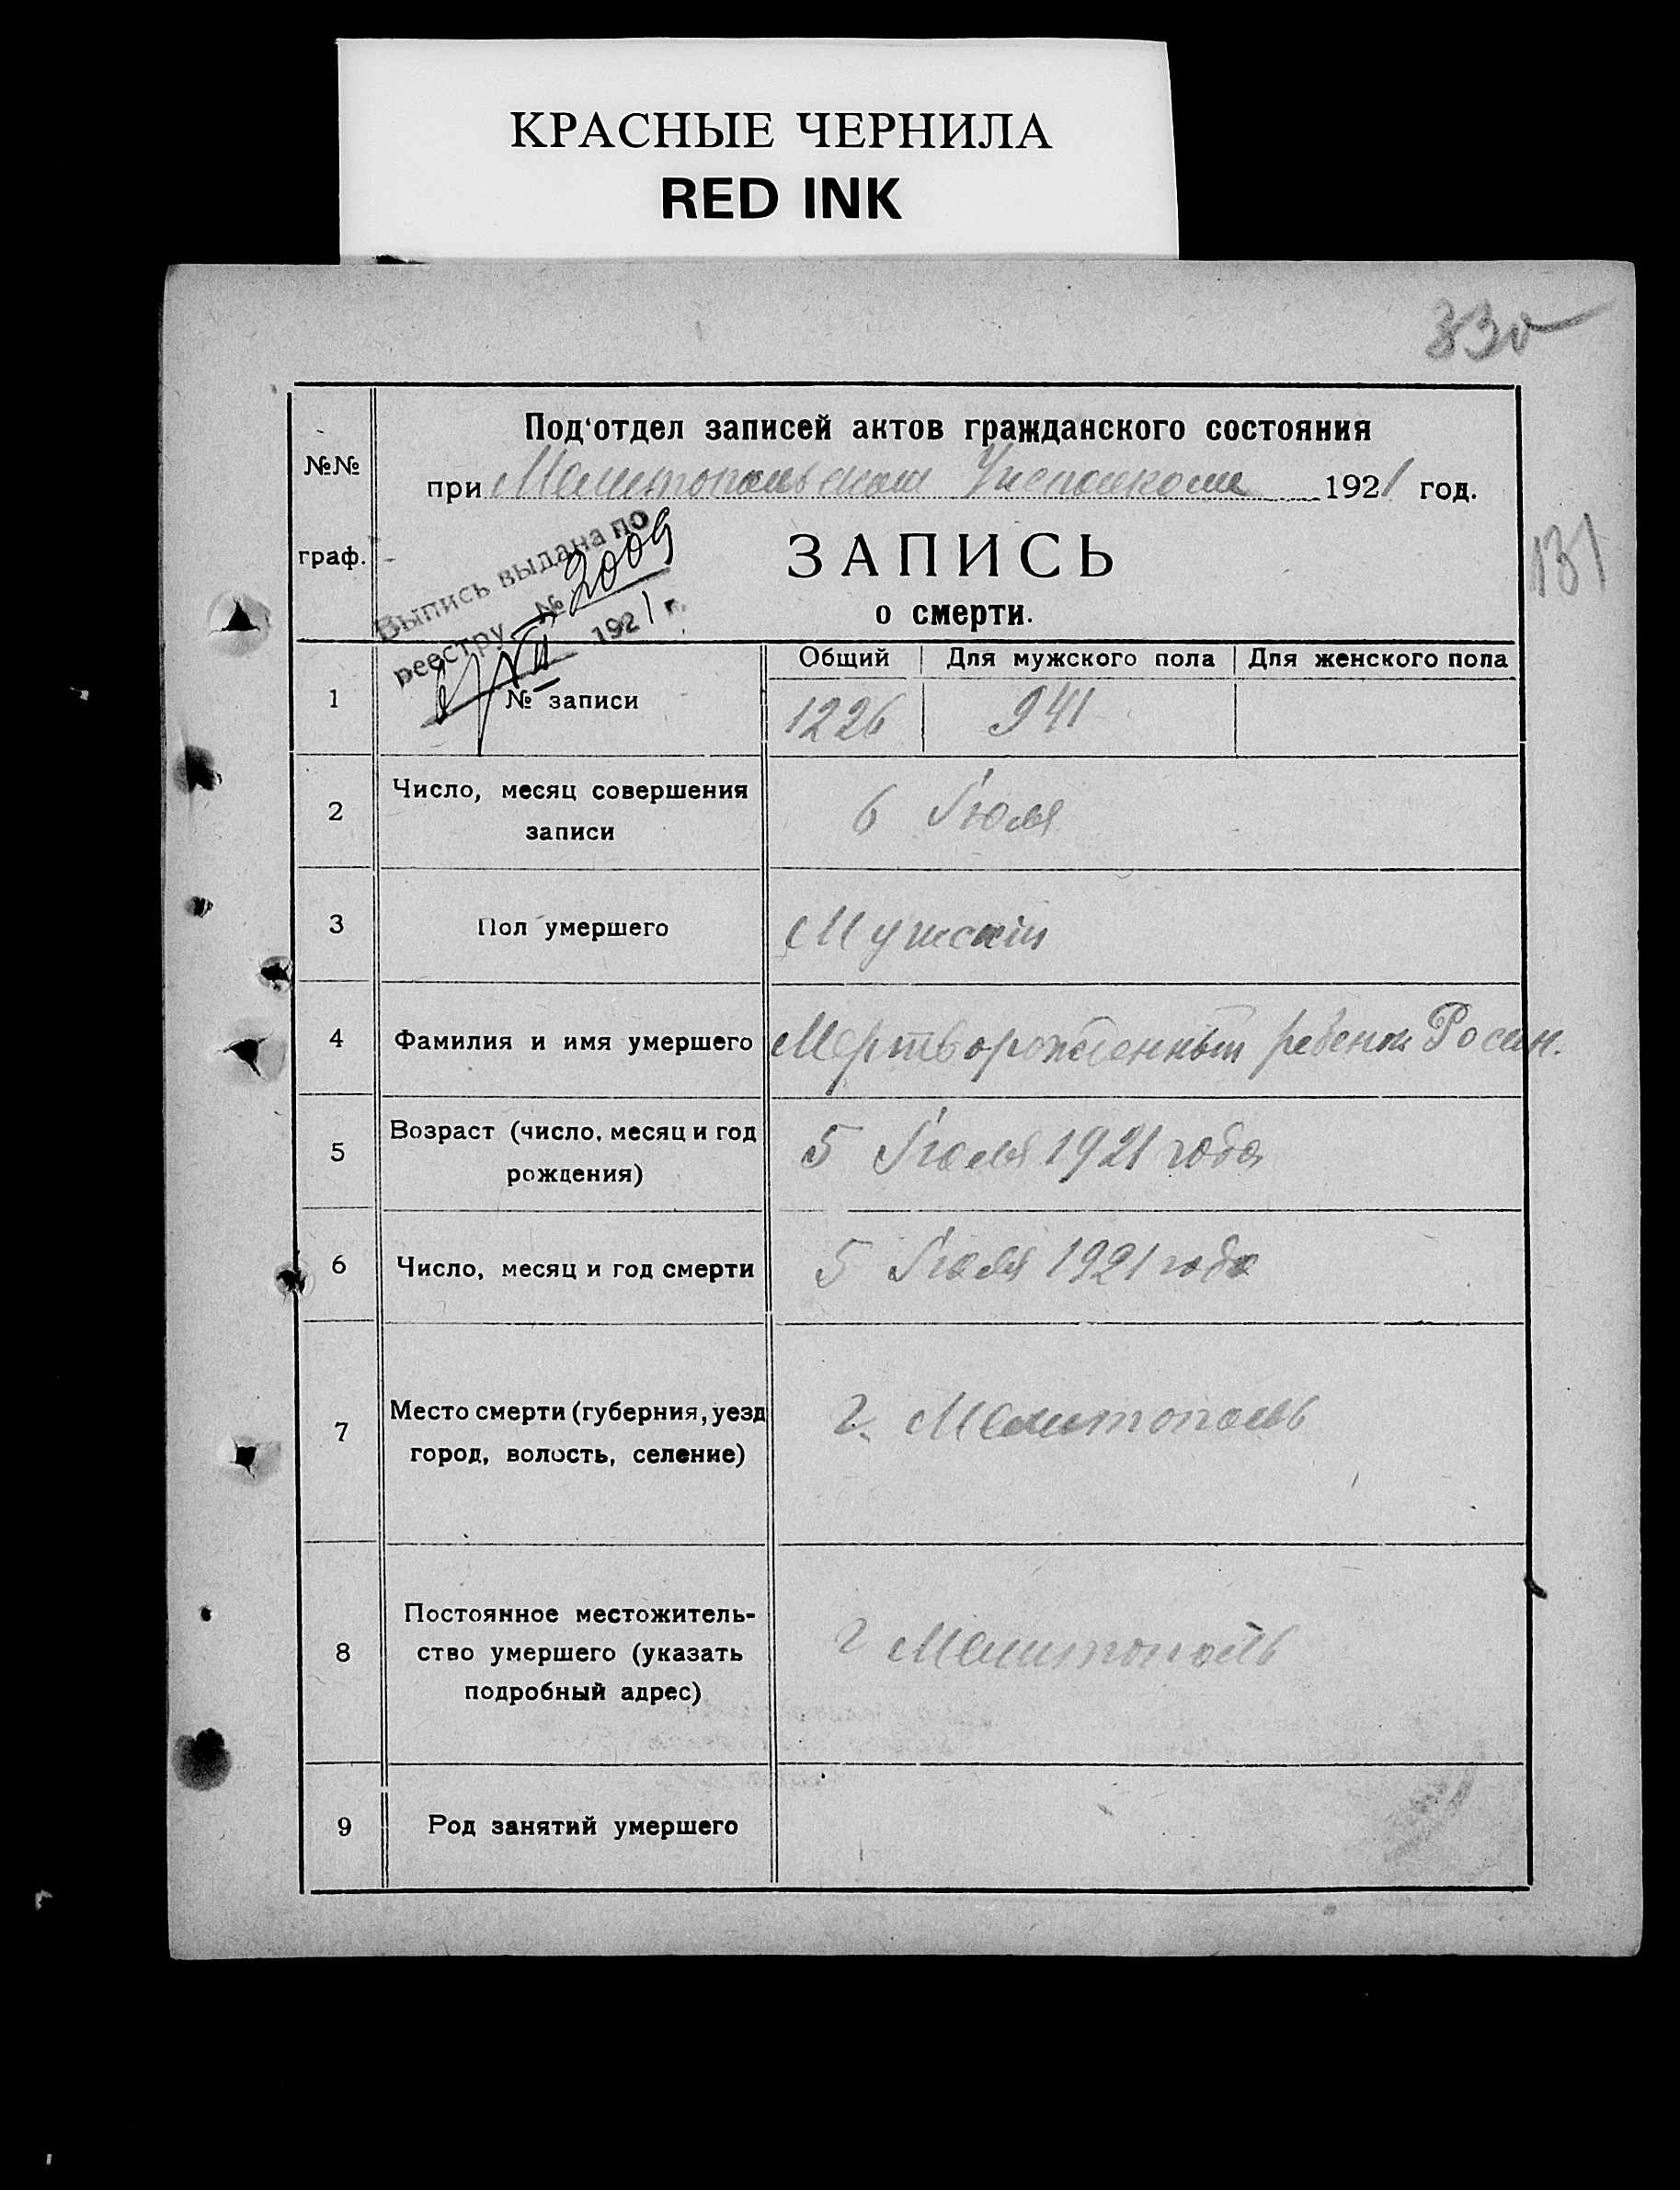 КРАСНЫЕ ЧЕРНИЛА
RED INK
330
№№
граф.
Под'отдел записей актов гражданского состояния
при Мелитопольском Исполкоме 1921 год.
131
Выпись выдана по
реестру № 2009
6/VII 1921 г.
ЗАПИСЬ
о смерти.
Общий Для мужского пола Для женского пола
1 № записи 1226 941
2 Число, месяц совершения
записи
6 Июля
3 Пол умершего Мужской
4 Фамилия и имя умершего Мертворожденный ребенок
5 Возраст (число, месяц и год
рождения)
5 Июля 1921 года
6 Число, месяц и год смерти 5 Июля 1921 года
7 Место смерти (губерния, уезд
город, волость, селение)
г. Мелитополь
8 Постоянное местожитель-
ство умершего (указать
подробный адрес)
г Мелитополь
9 Род занятий умершего